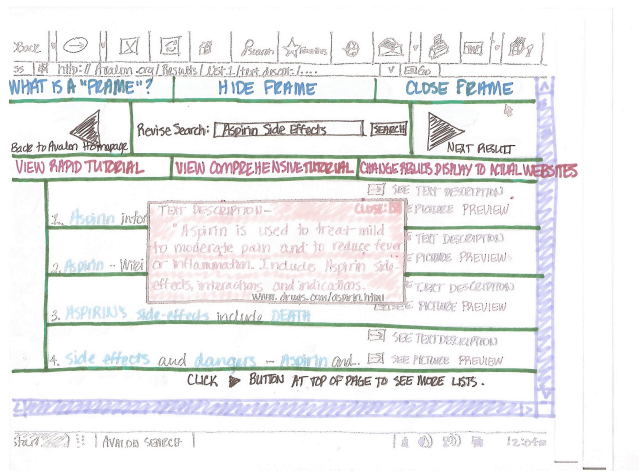 Back
Search Favorites
http://Avalon.org/Results/List1/text.descr./....
Go
WHAT IS A "FRAME"? HIDE FRAME CLOSE FRAME
Back to Avalon Homepage
Revise Search: Aspirin Side Effects SEARCH
NEXT RESULT
VIEW RAPID TUTORIAL VIEW COMPREHENSIVE TUTORIAL CHANGE RESULTS DISPLAY TO ACTUAL WEBSITES
SEE TEXT DESCRIPTION
1. Aspirin infor
E PICTURE PREVIEW
TEXT DESCRIPTION- CLOSE:
"Aspirin is used to treat mild
to moderate pain and to reduce fever
or inflammation. Includes Aspirin side-
effects, interactions and indications.
www.drugs.com/aspirin.html
E TEXT DESCRIPTION
2. Aspirin - Wiki
E PICTURE PREVIEW
DESCRIPTION
3. ASPIRIN'S side-effects include DEATH
SEE PICTURE PREVIEW
SEE TEXT DESCRIPTION
4. side effects and dangers - Aspirin and..
SEE PICTURE PREVIEW
CLICK ▶ BUTTON AT TOP OF PAGE TO SEE MORE LISTS.
start AVALON SEARCH 12:04am